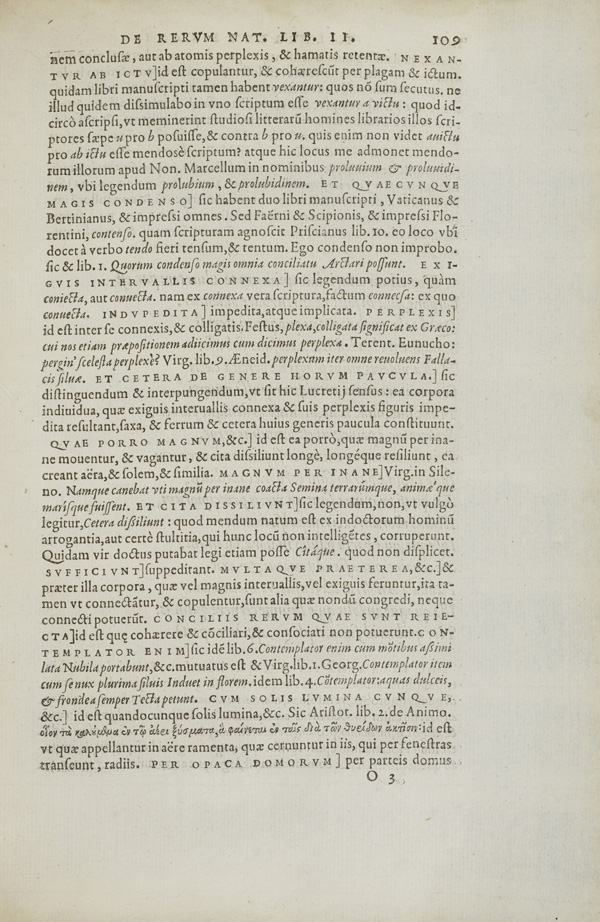 DE RERVM NAT. LIB. II. 109
nem conclusæ, aut ab atomis perplexis, & hamatis retentæ. NEXAN-
TVR AB ICTV] id est copulantur, & cohærescũt per plagam & ictum.
quidam libri manuscripti tamen habent vexantur: quos nõ sum secutus. ne
illud quidem dissimulabo in vno scriptum esse vexantur a victu: quod id-
circò ascripsi, vt meminerint studiosi litterarũ homines librarios illos scri-
ptores sæpe u pro b posuisse, & contra b pro u. quis enim non videt auictu
pro ab ictu esse mendosè scriptum? atque hic locus me admonet mendo-
rum illorum apud Non. Marcellum in nominibus proluuium & proluuidi-
nem, vbi legendum prolubium, & prolubidinem. ET QVAECVNQVE
MAGIS CONDENSO] sic habent duo libri manuscripti, Vaticanus &
Bertinianus, & impressi omnes. Sed Faërni & Scipionis, & impressi Flo-
rentini, contenso. quam scripturam agnoscit Priscianus lib. 10. eo loco vbi
docet à verbo tendo fieri tensum, & tentum. Ego condenso non improbo.
sic & lib. 1. Quorum condenso magis omnia conciliatu Arctari possunt. EXI-
GVIS INTERVALLIS CONNEXA] sic legendum potius, quàm
coniecta, aut conuecta. nam ex connexa vera scriptura, factum connecsa: ex quo
conuecta. INDVPEDITA] impedita, atque implicata. PERPLEXIS]
id est inter se connexis, & colligatis. Festus, plexa, colligata significat ex Græco:
cui nos etiam præpositionem adiicimus cum dicimus perplexa. Terent. Eunucho:
pergin' scelesta perplexè? Virg. lib. 9. Æneid. perplexum iter omne reuoluens Falla-
cis siluæ. ET CETERA DE GENERE HORVM PAVCVLA.] sic
distinguendum & interpungendum, vt sit hic Lucretij sensus: ea corpora
indiuidua, quæ exiguis interuallis connexa & suis perplexis figuris impe-
dita resultant, saxa, & ferrum & cetera huius generis paucula constituunt.
QVAE PORRO MAGNVM, &c.] id est ea porrò, quæ magnũ per ina-
ne mouentur, & vagantur, & cita dissiliunt longè, longéque resiliunt, ea
creant aëra, & solem, & similia. MAGNVM PER INANE] Virg. in Sile-
no. Namque canebat vti magnũ per inane coacta Semina terrarúmque, animæ'que
marísque fuissent. ET CITA DISSILIVNT] sic legendum, non, vt vulgò
legitur, Cetera dissiliunt: quod mendum natum est ex indoctorum hominũ
arrogantia, aut certè stultitia, qui hunc locũ non intelligẽtes, corruperunt.
Quidam vir doctus putabat legi etiam posse Citáque. quod non displicet.
SVFFICIVNT] suppeditant. MVLTAQVE PRAETEREA, &c.] &
præter illa corpora, quæ vel magnis interuallis, vel exiguis feruntur, ita ta-
men vt connectãtur, & copulentur, sunt alia quæ nondũ congredi, neque
connecti potuerũt. CONCILIIS RERVM QVAE SVNT REIE-
CTA] id est quę cohærere & cõciliari, & consociati non potuerunt. CON-
TEMPLATOR ENIM] sic idẽ lib. 6. Contemplator enim cum mõtibus assimi
lata Nubila portabunt, &c. mutuatus est & Virg. lib. 1. Georg. Contemplator item
cum se nux plurima siluis Induet in florem. idem lib. 4. Cõtemplator: aquas dulceis,
& frondea semper Tecta petunt. CVM SOLIS LVMINA CVNQVE,
&c.] id est quandocunque solis lumina, &c. Sic Aristot. lib. 2. de Animo.
οἷον τὰ καλούμενα ἐν τῷ ἀέρι ξύσματα, ἃ φαίνεται ἐν ταῖς διὰ τῶν θυείδων ἀκτῖσιν: id est
vt quæ appellantur in aëre ramenta, quæ cernuntur in iis, qui per fenestras
transeunt, radiis. PER OPACA DOMORVM] per parteis domus
O 3